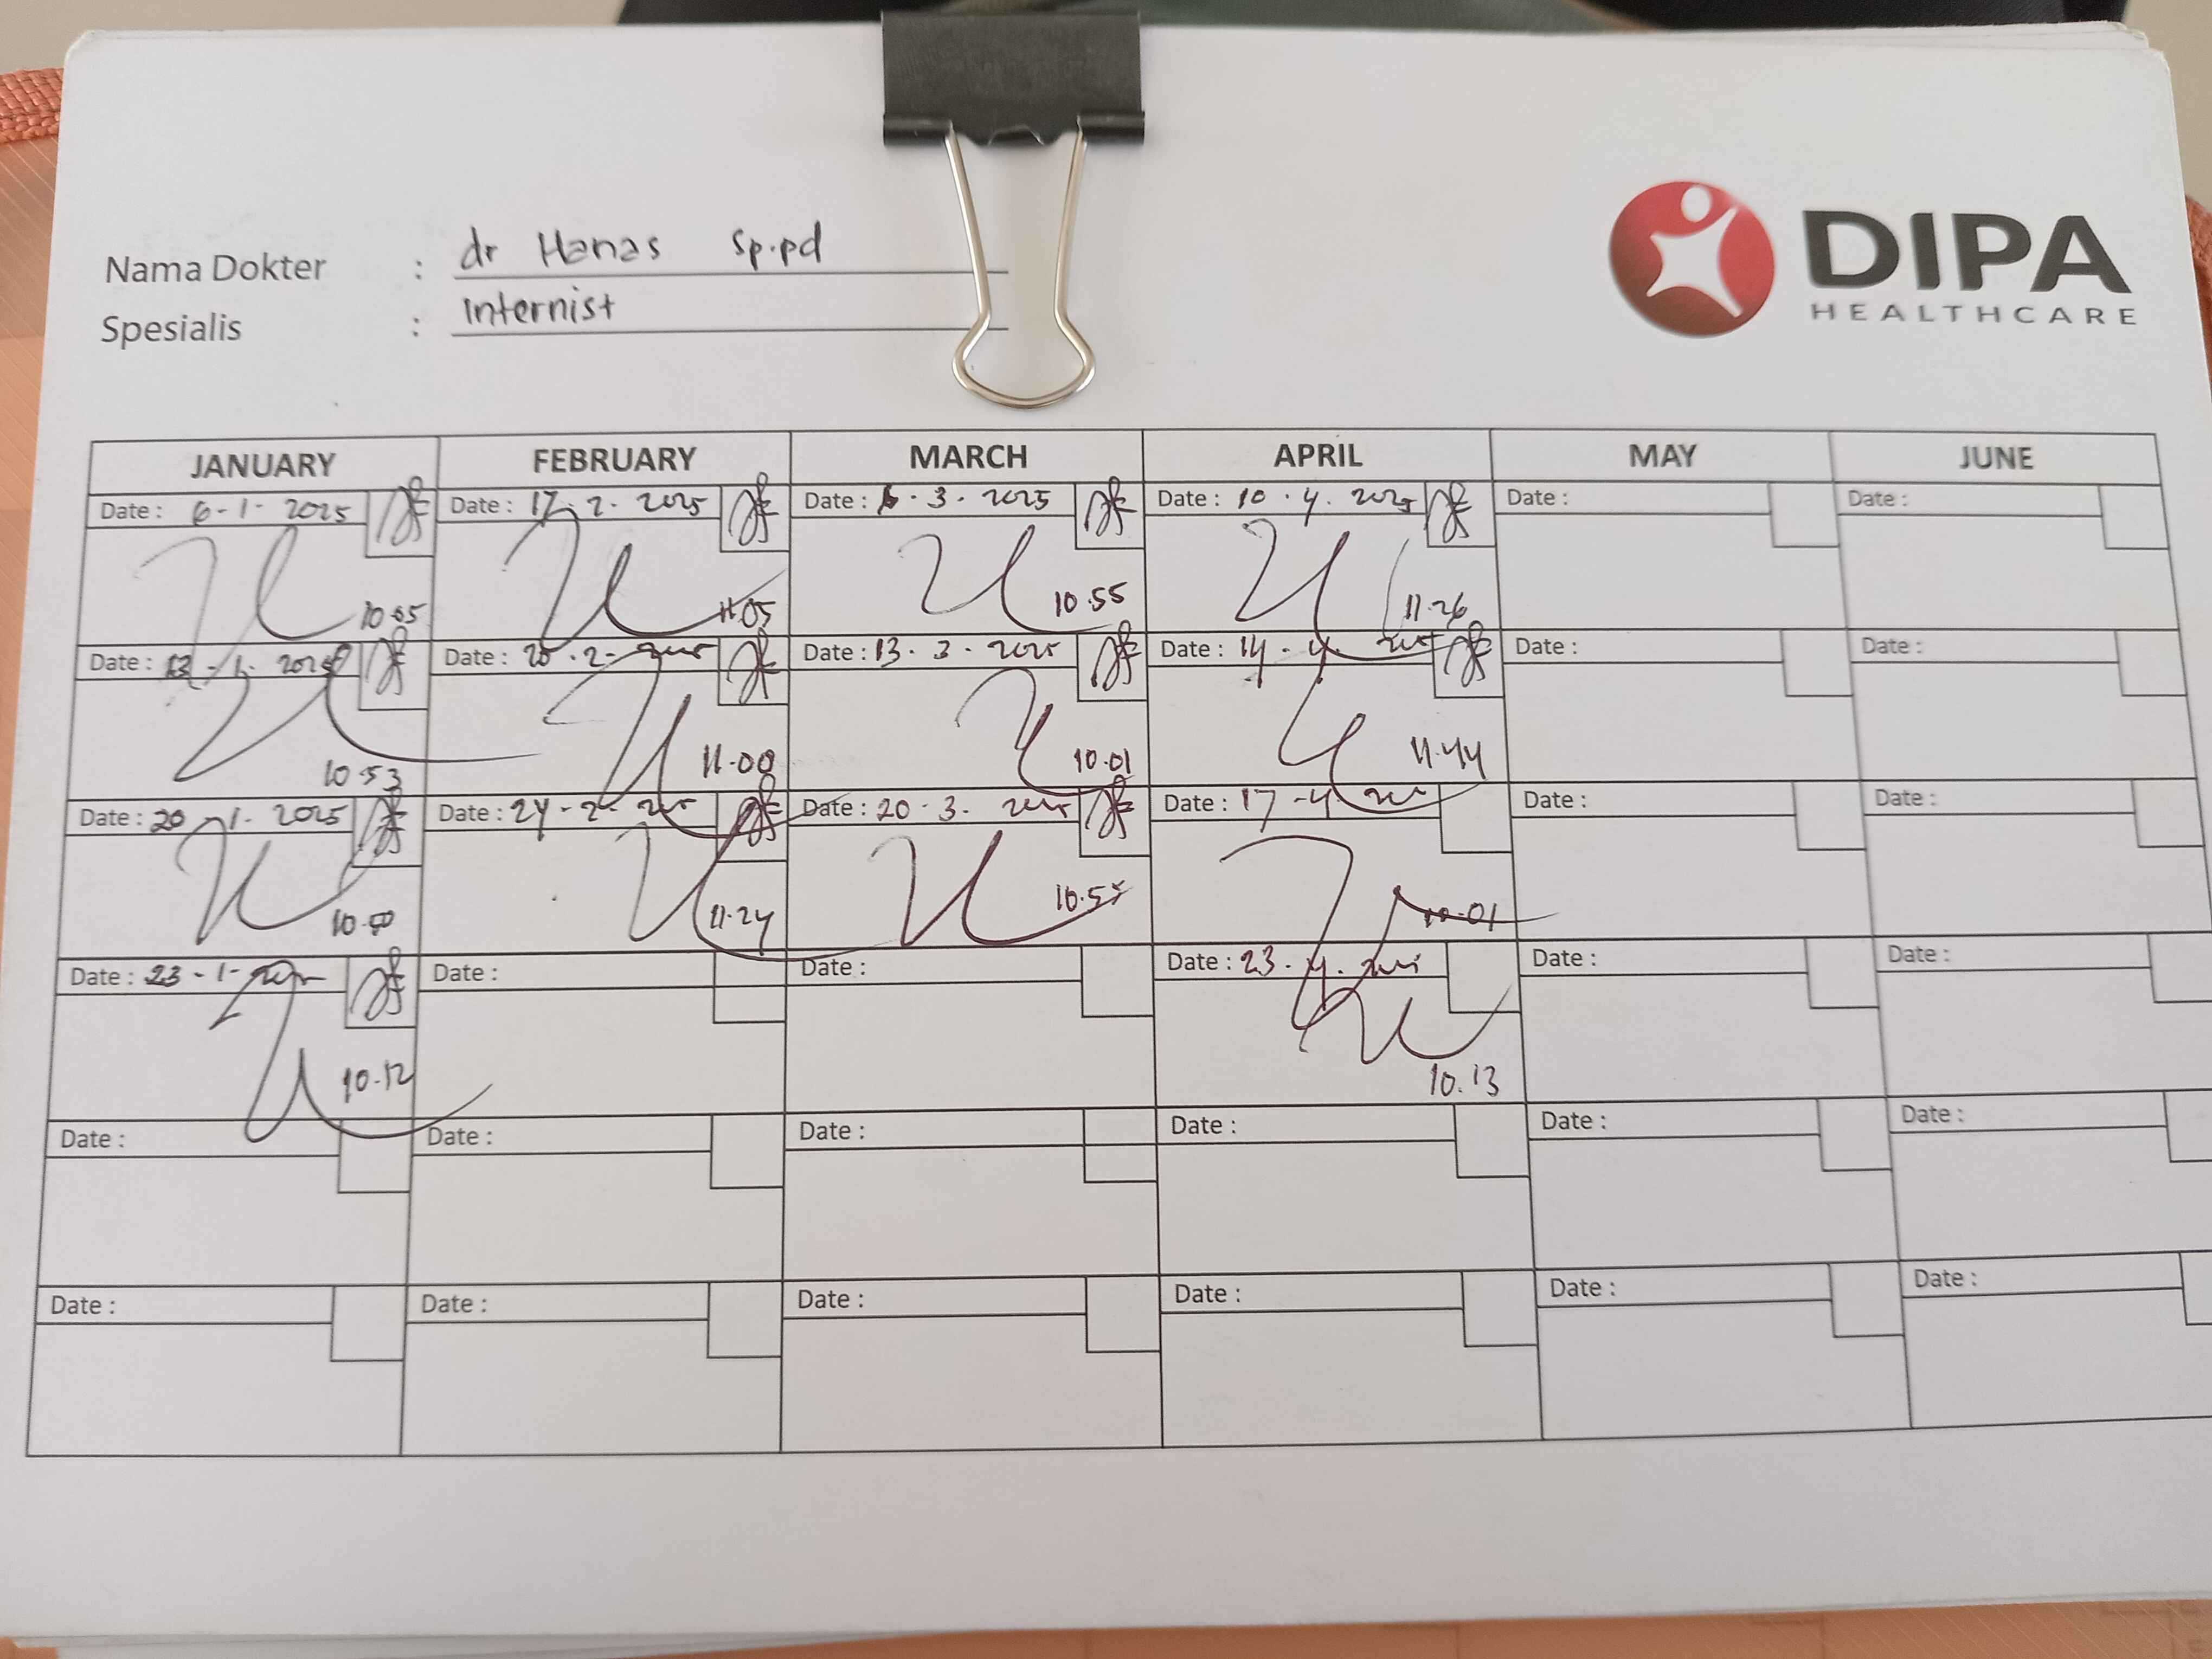 Nama Dokter : dr Hanas Sp.pd
Spesialis : Internist
DIPA
HEALTHCARE
JANUARY FEBRUARY MARCH APRIL MAY JUNE
Date : 6-1-2025 Date : 17.2.2025 Date : 6.3.2025 Date : 10.4.2025 Date : Date :
10.05 11.05 10.55 11.26
Date : 13-1-2025 Date : 20.2- Date : 13.3-2025 Date : 14-4. Date : Date :
10.53 11.00 10.01 11.44
Date : 20-1-2025 Date : 24-2- Date : 20.3. Date : 17-4. Date : Date :
11.24 10.55 10.01
Date : 23-1- Date : Date : Date : 23.4. Date : Date :
10.12 10.13
Date : Date : Date : Date : Date : Date :
Date : Date : Date : Date : Date : Date :